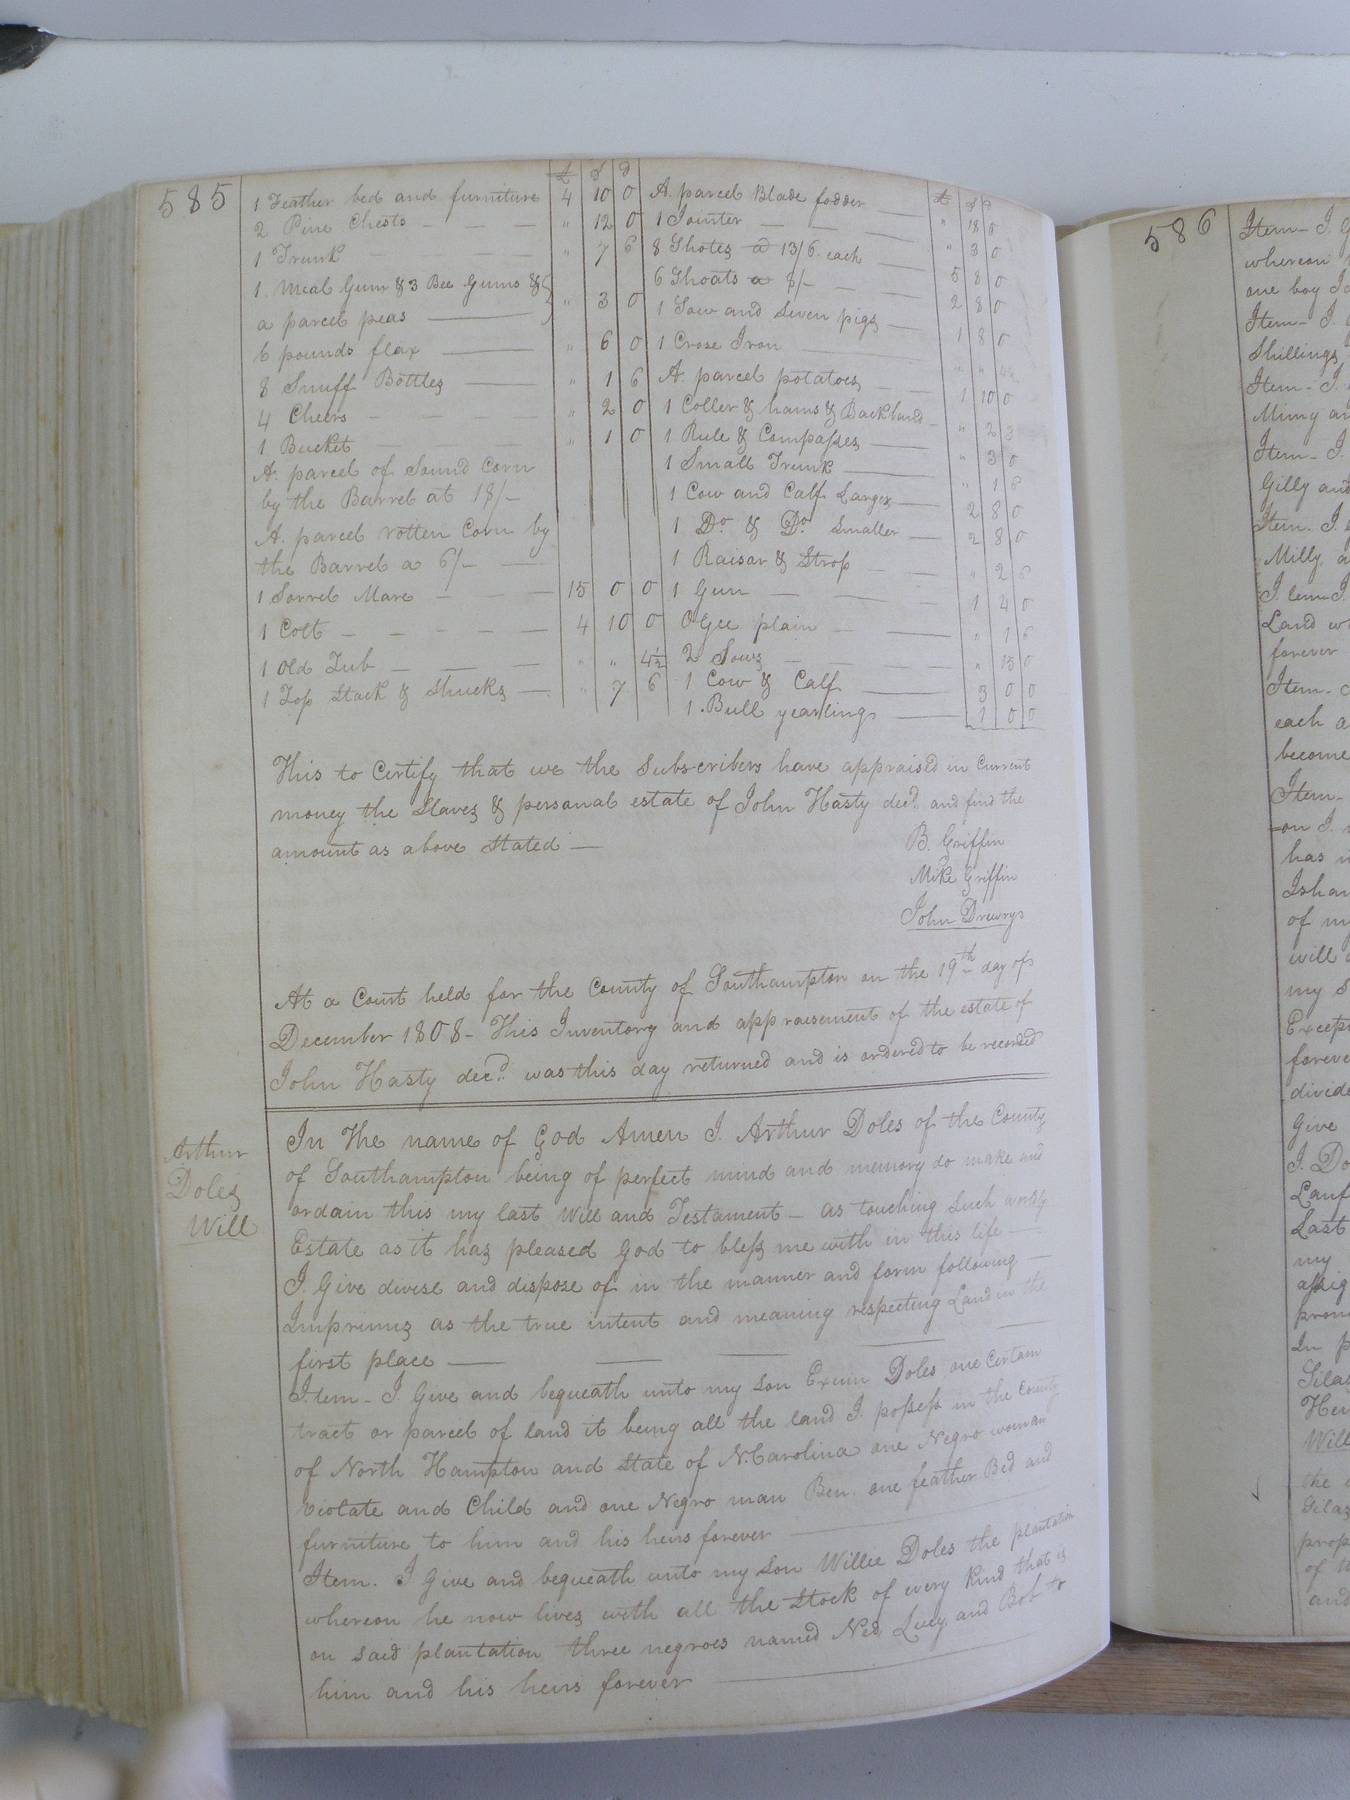 585
£ S D
1 Feather bed and furniture 4 10 0
2 Pine Chests — — — " 12 0
1 Trunk — — — — " 7 6
1 Meal Gum & 3 Bee Gums &
a parcel peas — " 3 0
6 pounds flax — " 6 0
8 Snuff Bottles — " 1 6
4 Cheers — — — — " 2 0
1 Bucket — — — " 1 0
A. parcel of Sound Corn
by the Barrel at 18/-
A. parcel rotten Corn by
the Barrel a 6/- —
1 Sorrel Mare — — — 15 0 0
1 Colt — — — — — 4 10 0
1 Old Tub — — — " " 4½
1 Top Stack & Shucks — " 7 6
£ S D
A. parcel Blade fodder — " 18 0
1 Jointer — — — " 3 0
8 Shotes a 13/6 each — 5 8 0
6 Shoats a 8/- — — 2 8 0
1 Sow and Seven pigs — 1 8 0
1 Crose Iron — " "
A. parcel potatoes — — 1 10 0
1 Coller & hams & Backband — " 2 3
1 Rule & Compasses — " 3 0
1 Small Trunk — " 1 6
1 Cow and Calf Larger — 2 8 0
1 Do. & Do. Smaller — 2 8 0
1 Raisar & Strop — — " 2 6
1 Gun — — — 1 4 0
OGee plain — — " 1 6
2 Sows — — — — " 15 0
1 Cow & Calf — 3 0 0
1 Bull yearlings — 1 0 0
This to Certify that we the Subscribers have appraised in Current
money the Slaves & personal estate of John Hasty decd. and find the
amount as above Stated —
B. Griffin
Mike Griffin
John Drewrys
At a Court held for the County of Southampton on the 19th day of
December 1808 - This Inventory and appraisement of the estate of
John Hasty decd. was this day returned and is ordered to be recorded
Arthur
Doles
Will
In The name of God Amen I. Arthur Doles of the County
of Southampton being of perfect mind and memory do make and
ordain this my last Will and Testament — as touching Such worldly
Estate as it has pleased God to bless me with in this life —
I. Give divise and dispose of in the manner and form following —
Imprimis as the true intent and meaning respecting Land in the
first place — — — — —
Item - I. Give and bequeath unto my Son Exum Doles one Certain
tract or parcel of land it being all the land I. possess in the County
of North Hampton and State of N. Carolina one Negro woman
Violate and Child and one Negro man Ben. one feather Bed and
furniture to him and his heirs forever —
Item. I Give and bequeath unto my Son Willie Doles the plantation
whereon he now lives with all the Stock of every kind that is
on Said plantation three negroes named Ned, Lucy and Bob to
him and his heirs forever —
586
Item - I. G
whereon
one boy
Item - I.
Shillings
Item - I.
Mimy an
Item - I.
Gilly and
Item. I.
Milly a
Item I.
Land wh
forever
Item.
each a
become
Item -
-on I.
has
Isha
of my
will
my S
Excep
forever
divide
Give
I. Do
Last
my
prom
In p
Silas
Will
the
Silas
prop
of
and